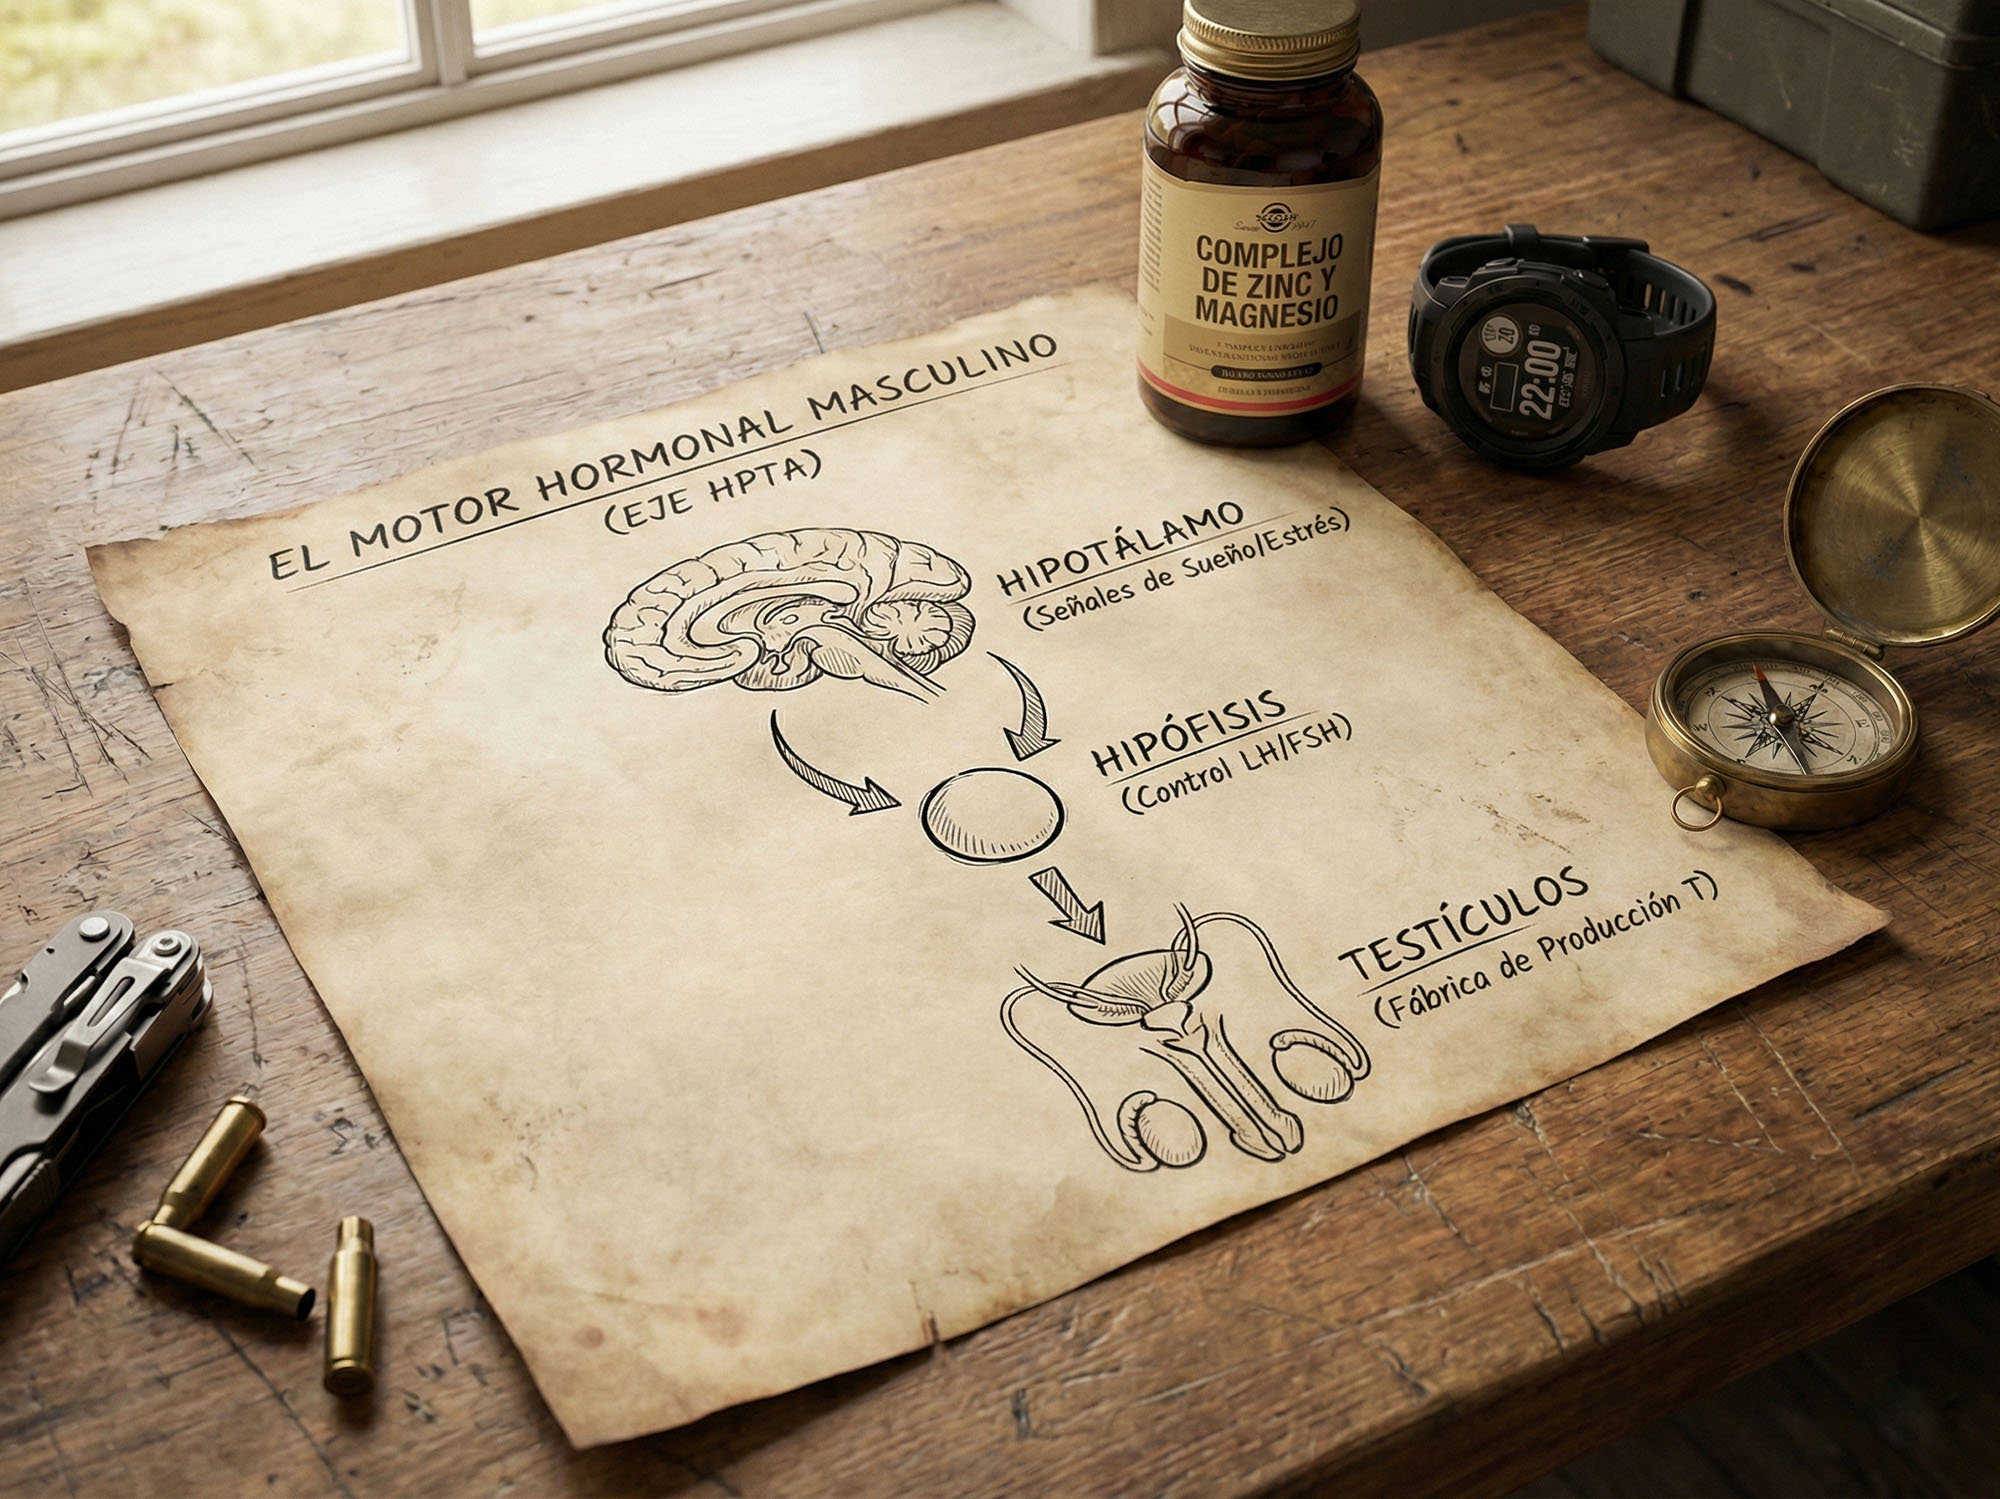 EL MOTOR HORMONAL MASCULINO
(EJE HPTA)
HIPOTÁLAMO
(Señales de Sueño/Estrés)
HIPÓFISIS
(Control LH/FSH)
TESTÍCULOS
(Fábrica de Producción T)
COMPLEJO
DE ZINC Y
MAGNESIO
22:00